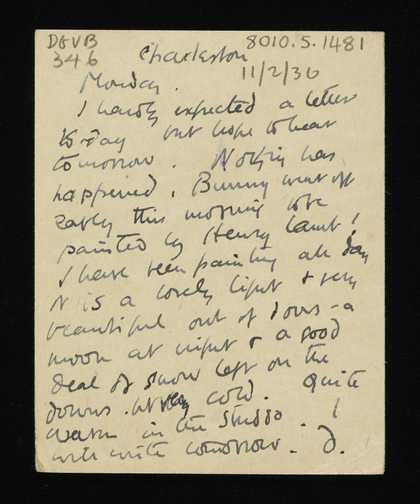 DGVB
8010.5.1481
346
Charleston
11/2/36
Monday.
I hardly expected a letter
to-day but hope to hear
tomorrow. Nothing has
happened. Bunny went off
early this morning to be
painted by Henry Lamb!
I have been painting all day
it is a lovely light & very
beautiful out of doors - a
moon at night & a good
deal of snow left on the
downs. very cold. Quite
warm in the studio. I
will write tomorrow. D.